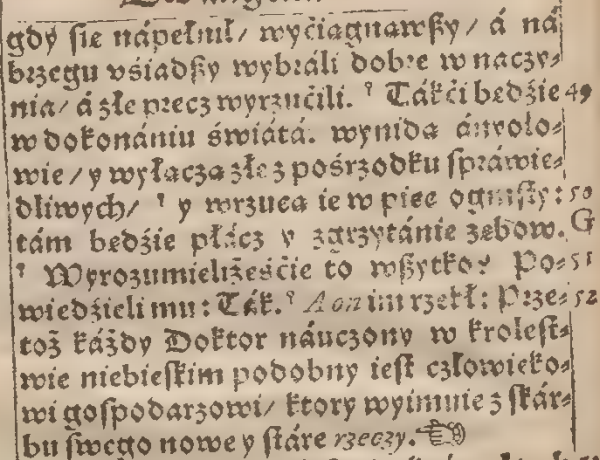 gdy ſie nápełnił / wyćiągnąwſzy / á ná
brzegu vśiadſzy wybráli dobre w naczy⸗
nia / á złe precz wyrzućili. ˀ Tákći bedźie 49
w dokonániu świátá. wynidą ányoło⸗
wie / y wyłączą złe z pośrzodku ſpráwie⸗
dliwych / ˀ y wrzucą ie w piec ogniſty : 50
tám bedźie płácz y zgrzytánie zębow. G
ˀ Wyrozumieliżeśćie to wſzytko? Po⸗ 51
wiedźieli mu : Ták. ˀ A on im rzekł : Prze⸗ 52
toż káżdy Doktor náuczony w kroleſt⸗
wie niebieſkim podobny ieſt człowieko⸗
wi goſpodarzowi / ktory wyimuie z ſkár⸗
bu ſwego nowe y ſtáre rzeczy. ☜